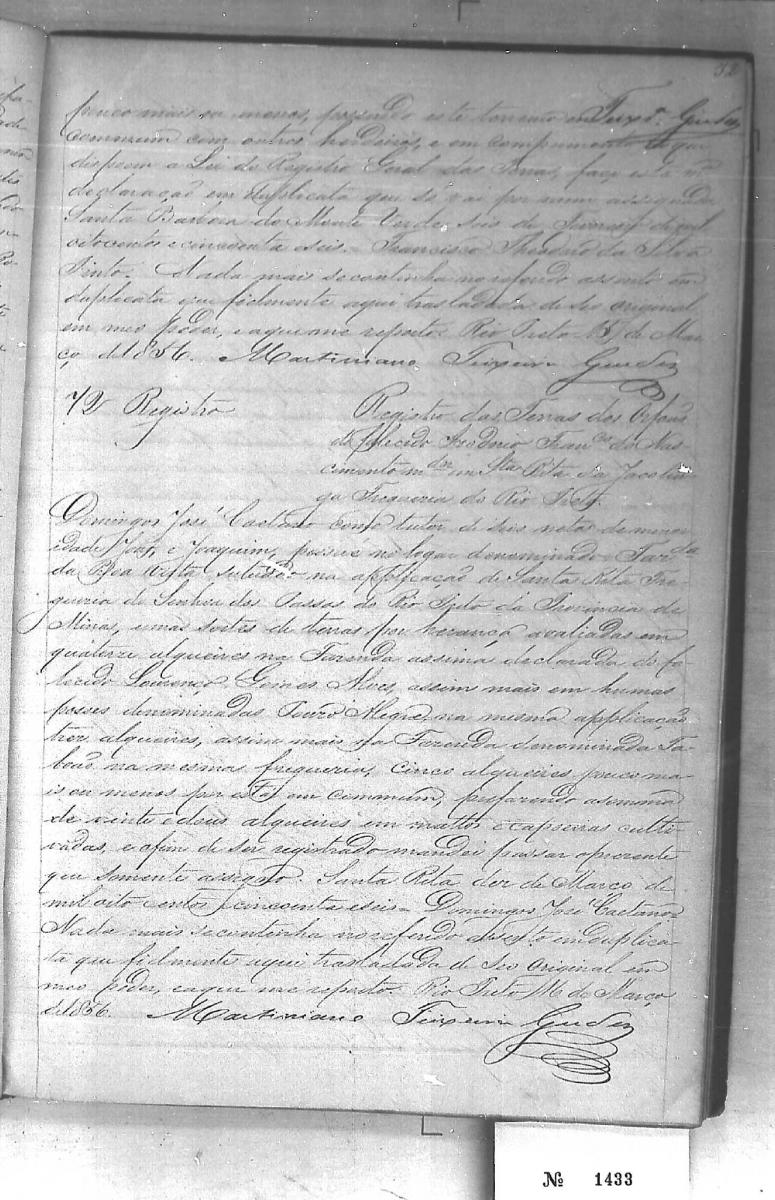 72
pouco mais ou menos, possuindo este terreno em Teixrª Guedes
commum com outros herdeiros, e em comprimento do que
dispoem a Lei do Registro Geral das Terras, faço esta
declaração em duplicata que só vai por mim assignada
Santa Barbora do Monte Verde seis de de mil
oitocentos e cincoenta e seis. Francisco Theodoro da Silva
Pinto. Nada mais se continha no referido assento em
duplicata que fielmente aqui trasladada de seo original
em meo poder, e aque me reporto. Rio Preto 15 de Mar
ço, de 1856. Martiniano Teixeira Guedes
72 Registro
Registro das Terras dos Orfaos
do falecido Franco do Nas
cimento mdor em Sta Rita da Jacotin
ga Freguezia do Rio Preto.
Domingos José Caetano como tutor de dois netos de menor
idade José, e Joaquim, possue no lugar denominado Fazda
da Boa Vista na applicação de Santa Rita Fre
guezia do Senhor dos Passos do Rio Preto da Provincia de
Minas, umas sortes de terras por herança avaliadas em
quatorze alqueires na Fazenda assima declarada do fa
lecido Lourenço Gomes Alves, assim mais em humas
posses denominadas Pouzo Alegre, na mesma applicação
tres alqueires, assim mais na Fazenda denominada Ta
boão na mesma freguezia, cinco alqueires pouco ma
is ou menos por estar em commum, prefazendo a somma
de vinte e dous alqueires em mattos e capoeiras culti
vadas, e afim de ser registrado mandei passar o prezente
que somente assigno. Santa Rita dez de Março de
mil oito centos e cincoenta e seis. Domingos José Caetano
Nada mais se continha no referido assento em duplica
ta que fielmente aqui trasladada de seo original em
meo poder, e aque me reporto. Rio Preto 16 de Março
de 1856. Martiniano Teixeira Guedes
Nº 1433